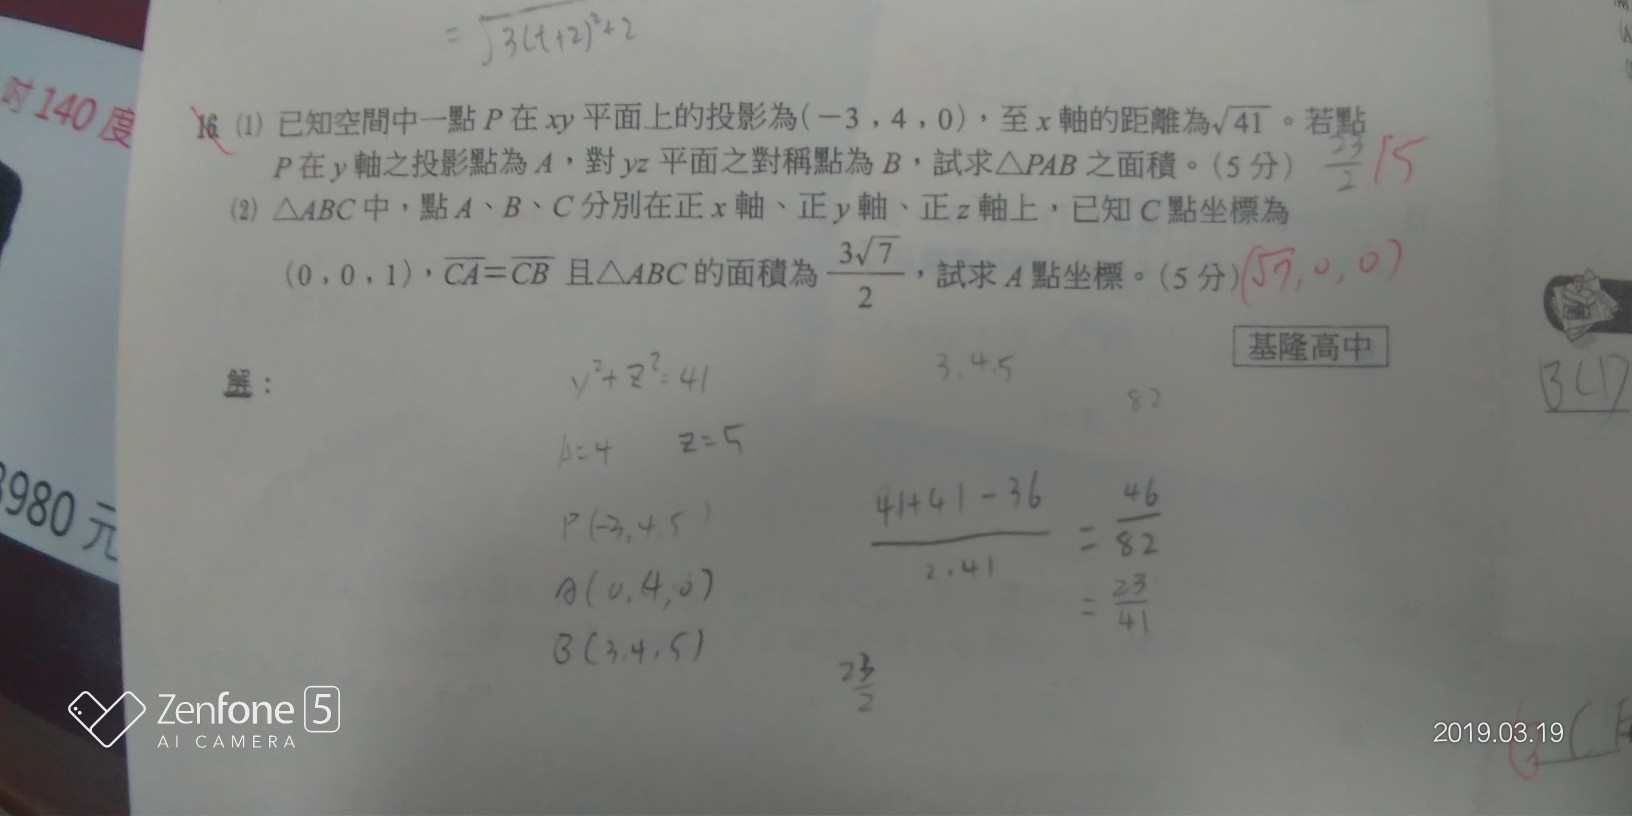 = √3(t+2)²+2
吋140度
16 (1) 已知空間中一點 P 在 xy 平面上的投影為(-3,4,0),至 x 軸的距離為√41。若點
P 在 y 軸之投影點為 A,對 yz 平面之對稱點為 B,試求△PAB 之面積。(5 分) 23/2 15
(2) △ABC 中,點 A、B、C 分別在正 x 軸、正 y 軸、正 z 軸上,已知 C 點坐標為
(0,0,1),CA=CB 且△ABC 的面積為 3√7/2,試求 A 點坐標。(5 分) (√7,0,0)
基隆高中
解:
y²+z²=41
3.4.5
82
A=4 z=5
P(-3,4,5)
A(0,4,0)
B(3,4,5)
41+41-36 / 2·41 = 46/82
= 23/41
23/2
3980元
13(1)
Zenfone 5
AI CAMERA
2019.03.19